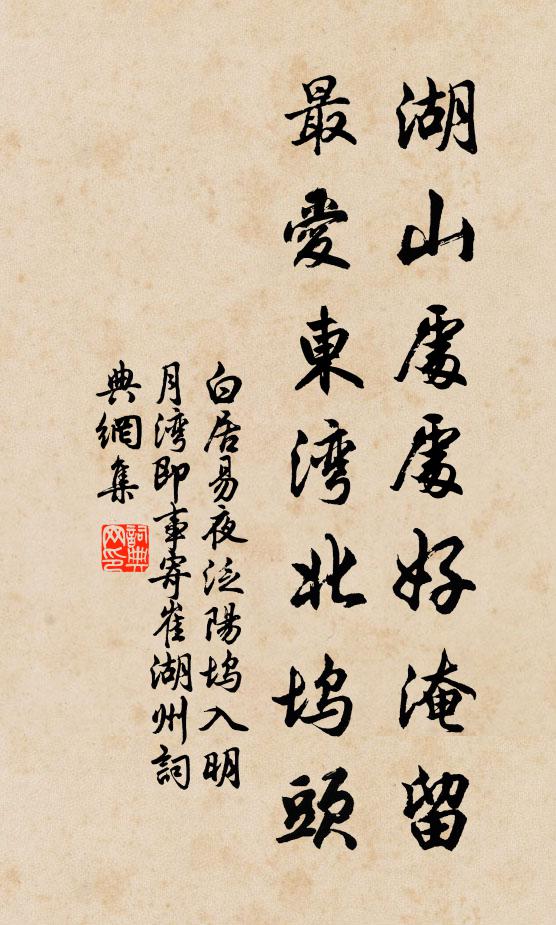 湖山處處好淹留
最愛東湾北塢頭
白居易夜泛陽塢入明
月湾即事寄崔湖州詞
典網集
詞典
网印